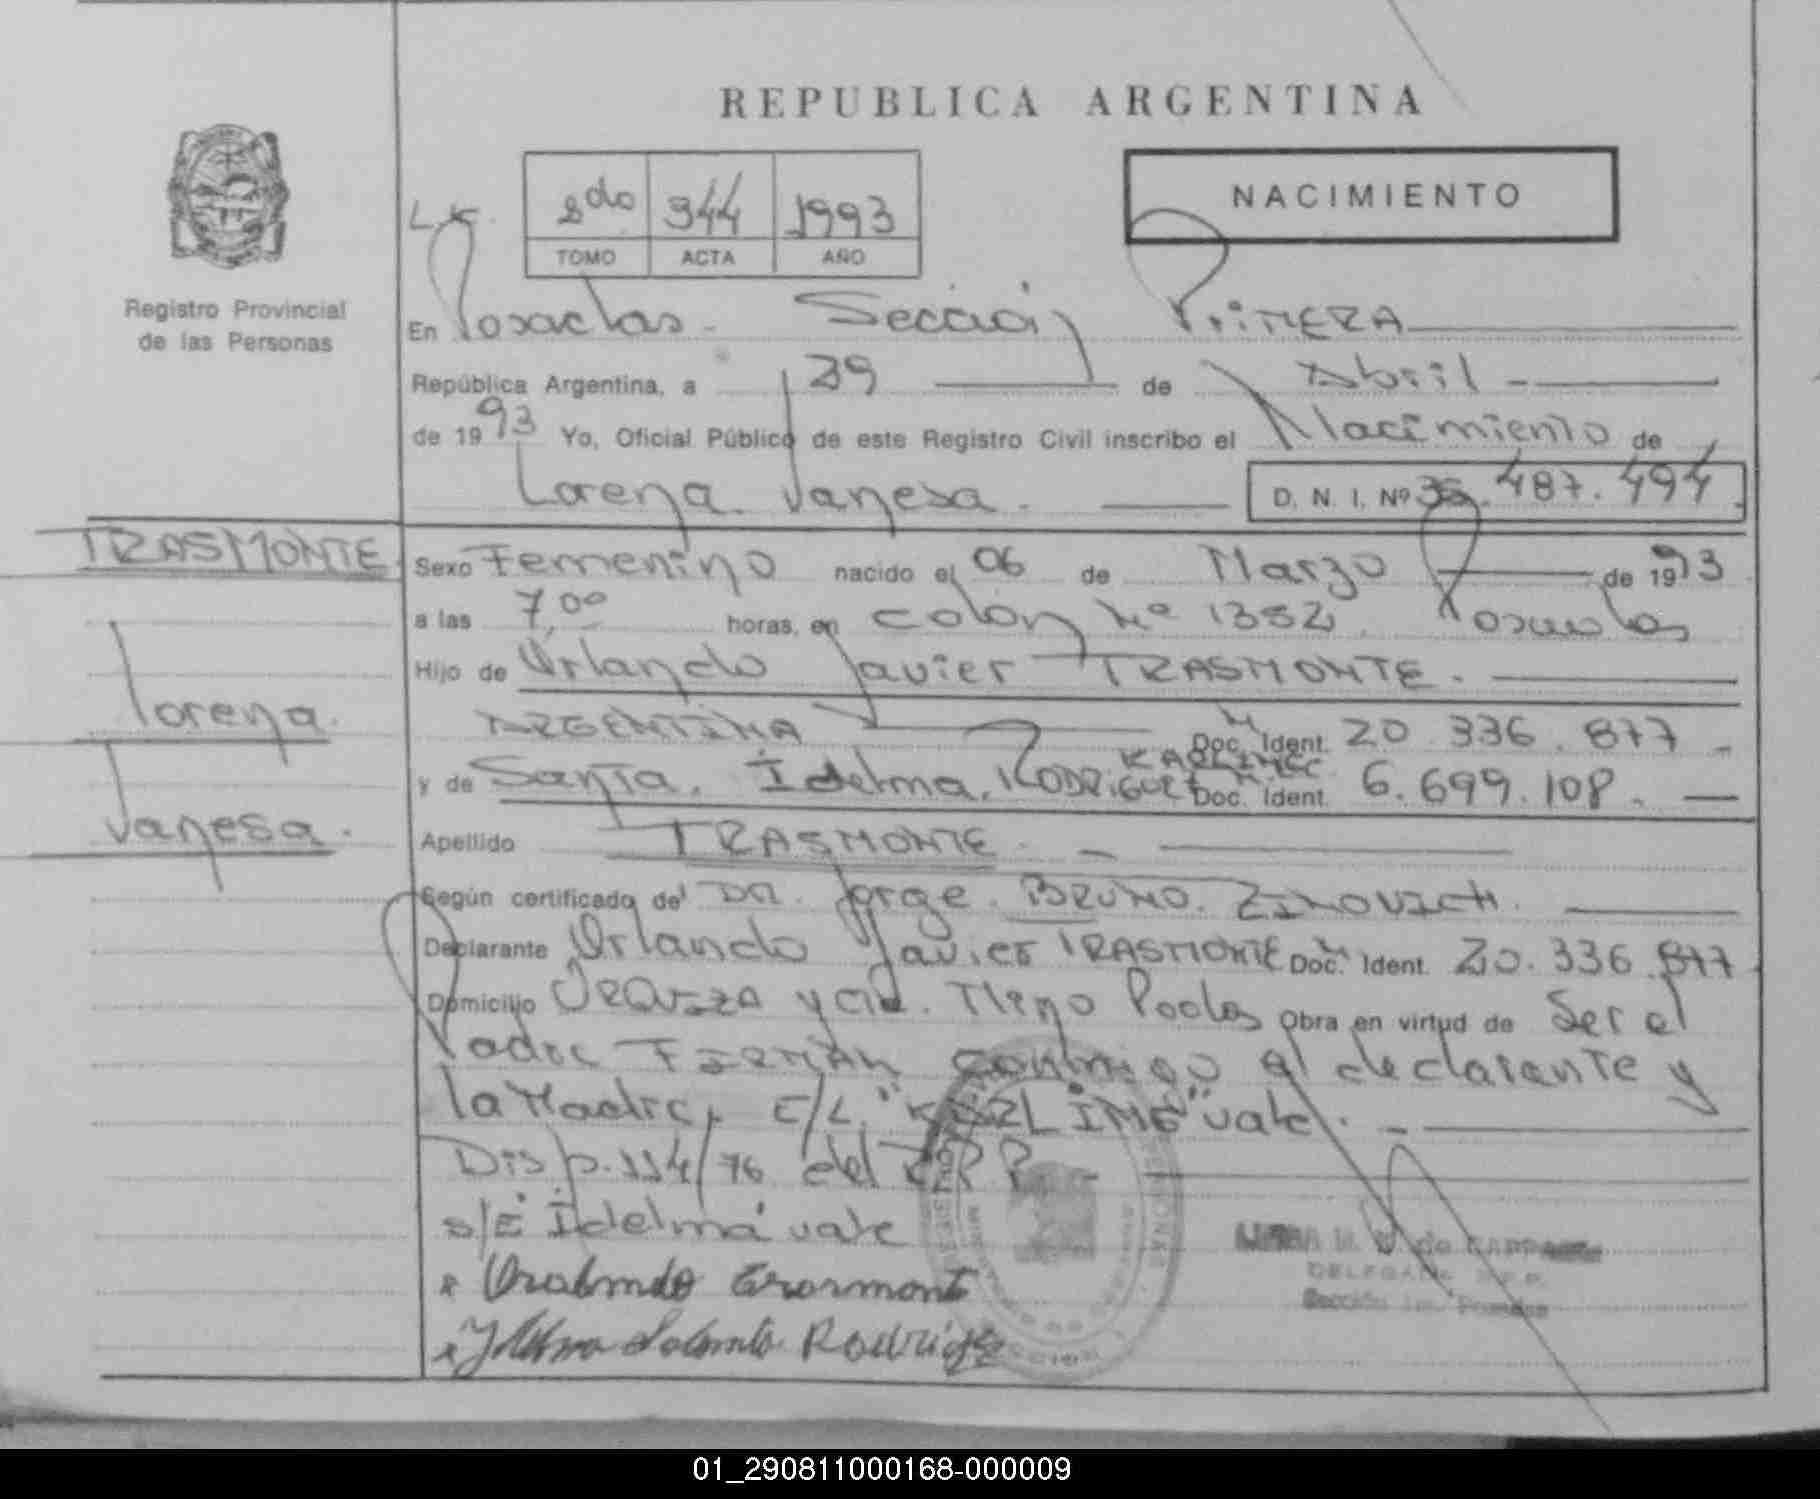 REPUBLICA ARGENTINA
NACIMIENTO
2do 344 1993
TOMO ACTA AÑO
Registro Provincial
de las Personas
En Posadas - Sección Primera
República Argentina, a 29 de Abril
de 1993 Yo, Oficial Público de este Registro Civil inscribo el Nacimiento de
Lorena Vanesa. D. N. I. Nº 36.487.494
TRASMONTE
Lorena
Vanesa.
Sexo Femenino nacido el 06 de Marzo de 1993
a las 7,00 horas, en Colón Nº 1352 Posadas
Hijo de Orlando Javier TRASMONTE.
ARGENTINA Doc. Ident. 20.336.877
y de Santa, Idelma, RODRIGUEZ Doc. Ident. 6.699.108.
Apellido TRASMONTE
Según certificado del DR. Jorge. BRUNO. ZINOVICH.
Declarante Orlando Javier TRASMONTE Doc. Ident. 20.336.877
Domicilio URQUIZA y Obra en virtud de Ser el
Padre FIRMAN conmigo el declarante y
la Madre, E/L. vale.
Disp. 114/76 del R P P
s/E Idelma vale
Rodriguez
DELEGADA R.P.P.
01_290811000168-000009